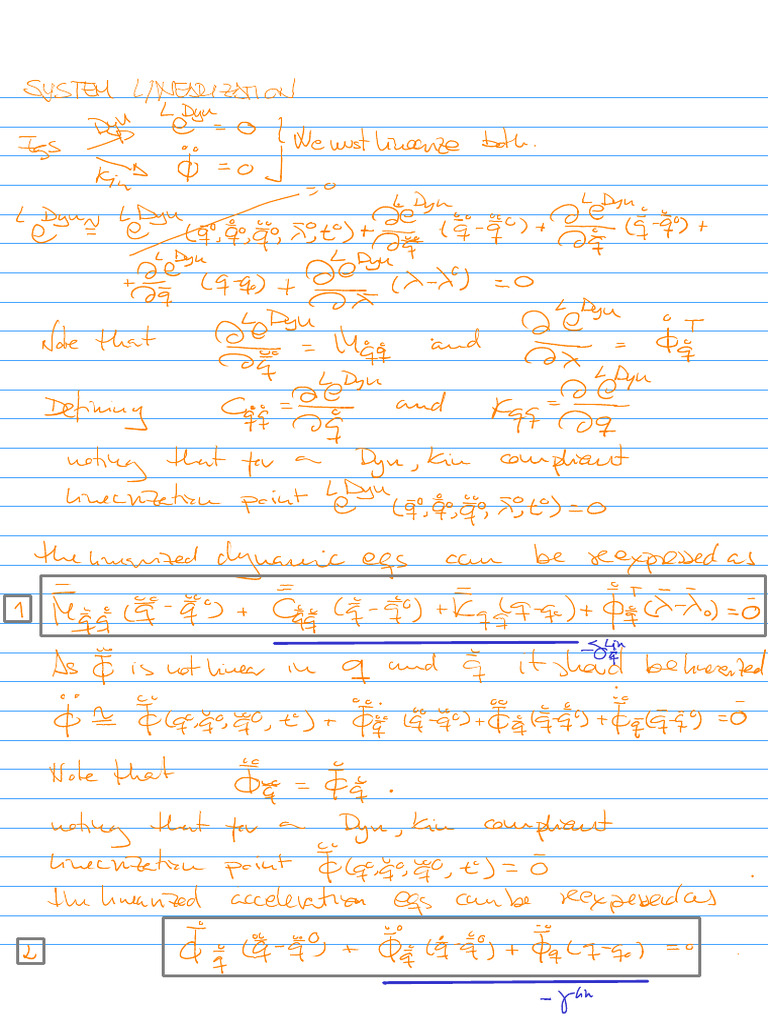 SYSTEM LINEARIZATION
Eqs Dyn e^{L Dyn} = 0
Kin Φ̈ = 0
We must linearize both.
= 0
e^{L Dyn} ≅ e^{L Dyn} (q⁰, q̇⁰, q̈⁰, λ⁰, t⁰) + ∂e^{L Dyn}/∂q̈ (q̈ - q̈⁰) + ∂e^{L Dyn}/∂q̇ (q̇ - q̇⁰) +
+ ∂e^{L Dyn}/∂q (q - q₀) + ∂e^{L Dyn}/∂λ (λ - λ⁰) = 0
Note that ∂e^{L Dyn}/∂q̈ = M_{q̇q̇} and ∂e^{L Dyn}/∂λ = Φ̇_{q̇}^T
Defining C_{q̇q̇} = ∂e^{L Dyn}/∂q̇ and K_{qq} = ∂e^{L Dyn}/∂q
noting that for a Dyn, Kin compliant
linearization point e^{L Dyn} (q⁰, q̇⁰, q̈⁰, λ⁰, t⁰) = 0
the linearized dynamic eqs can be reexpressed as
1 M_{q̇q̇} (q̈ - q̈⁰) + C_{q̇q̇} (q̇ - q̇⁰) + K_{qq} (q - q₀) + Φ̇_{q̇}^T (λ̄ - λ̄₀) = 0̄
- δ_{q̇}^{lin}
As Φ̈ is not linear in q and q̇ it should be linearized
Φ̈ ≅ Φ̈ (q⁰, q̇⁰, q̈⁰, t⁰) + Φ̈_{q̈} (q̈ - q̈⁰) + Φ̈_{q̇} (q̇ - q̇⁰) + Φ̈_{q} (q̄ - q̄⁰) = 0̄
Note that Φ̈_{q̈} = Φ̇_{q̇} .
noting that for a Dyn, Kin compliant
linearization point Φ̈ (q⁰, q̇⁰, q̈⁰, t⁰) = 0̄
the linearized acceleration eqs can be reexpressed as
2 Φ̇_{q̇} (q̈ - q̈⁰) + Φ̈_{q̇} (q̇ - q̇⁰) + Φ̈_{q} (q - q₀) = 0
- γ^{lin}